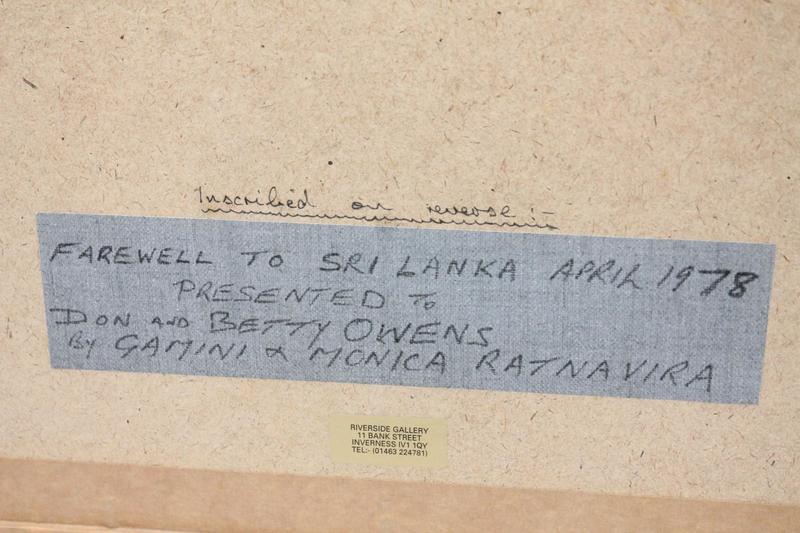 Inscribed on reverse :-
FAREWELL TO SRI LANKA APRIL 1978
PRESENTED To
DON AND BETTY OWENS
By GAMINI & MONICA RATNAVIRA
RIVERSIDE GALLERY
11 BANK STREET
INVERNESS IV1 1QY
TEL:- (01463 224781)